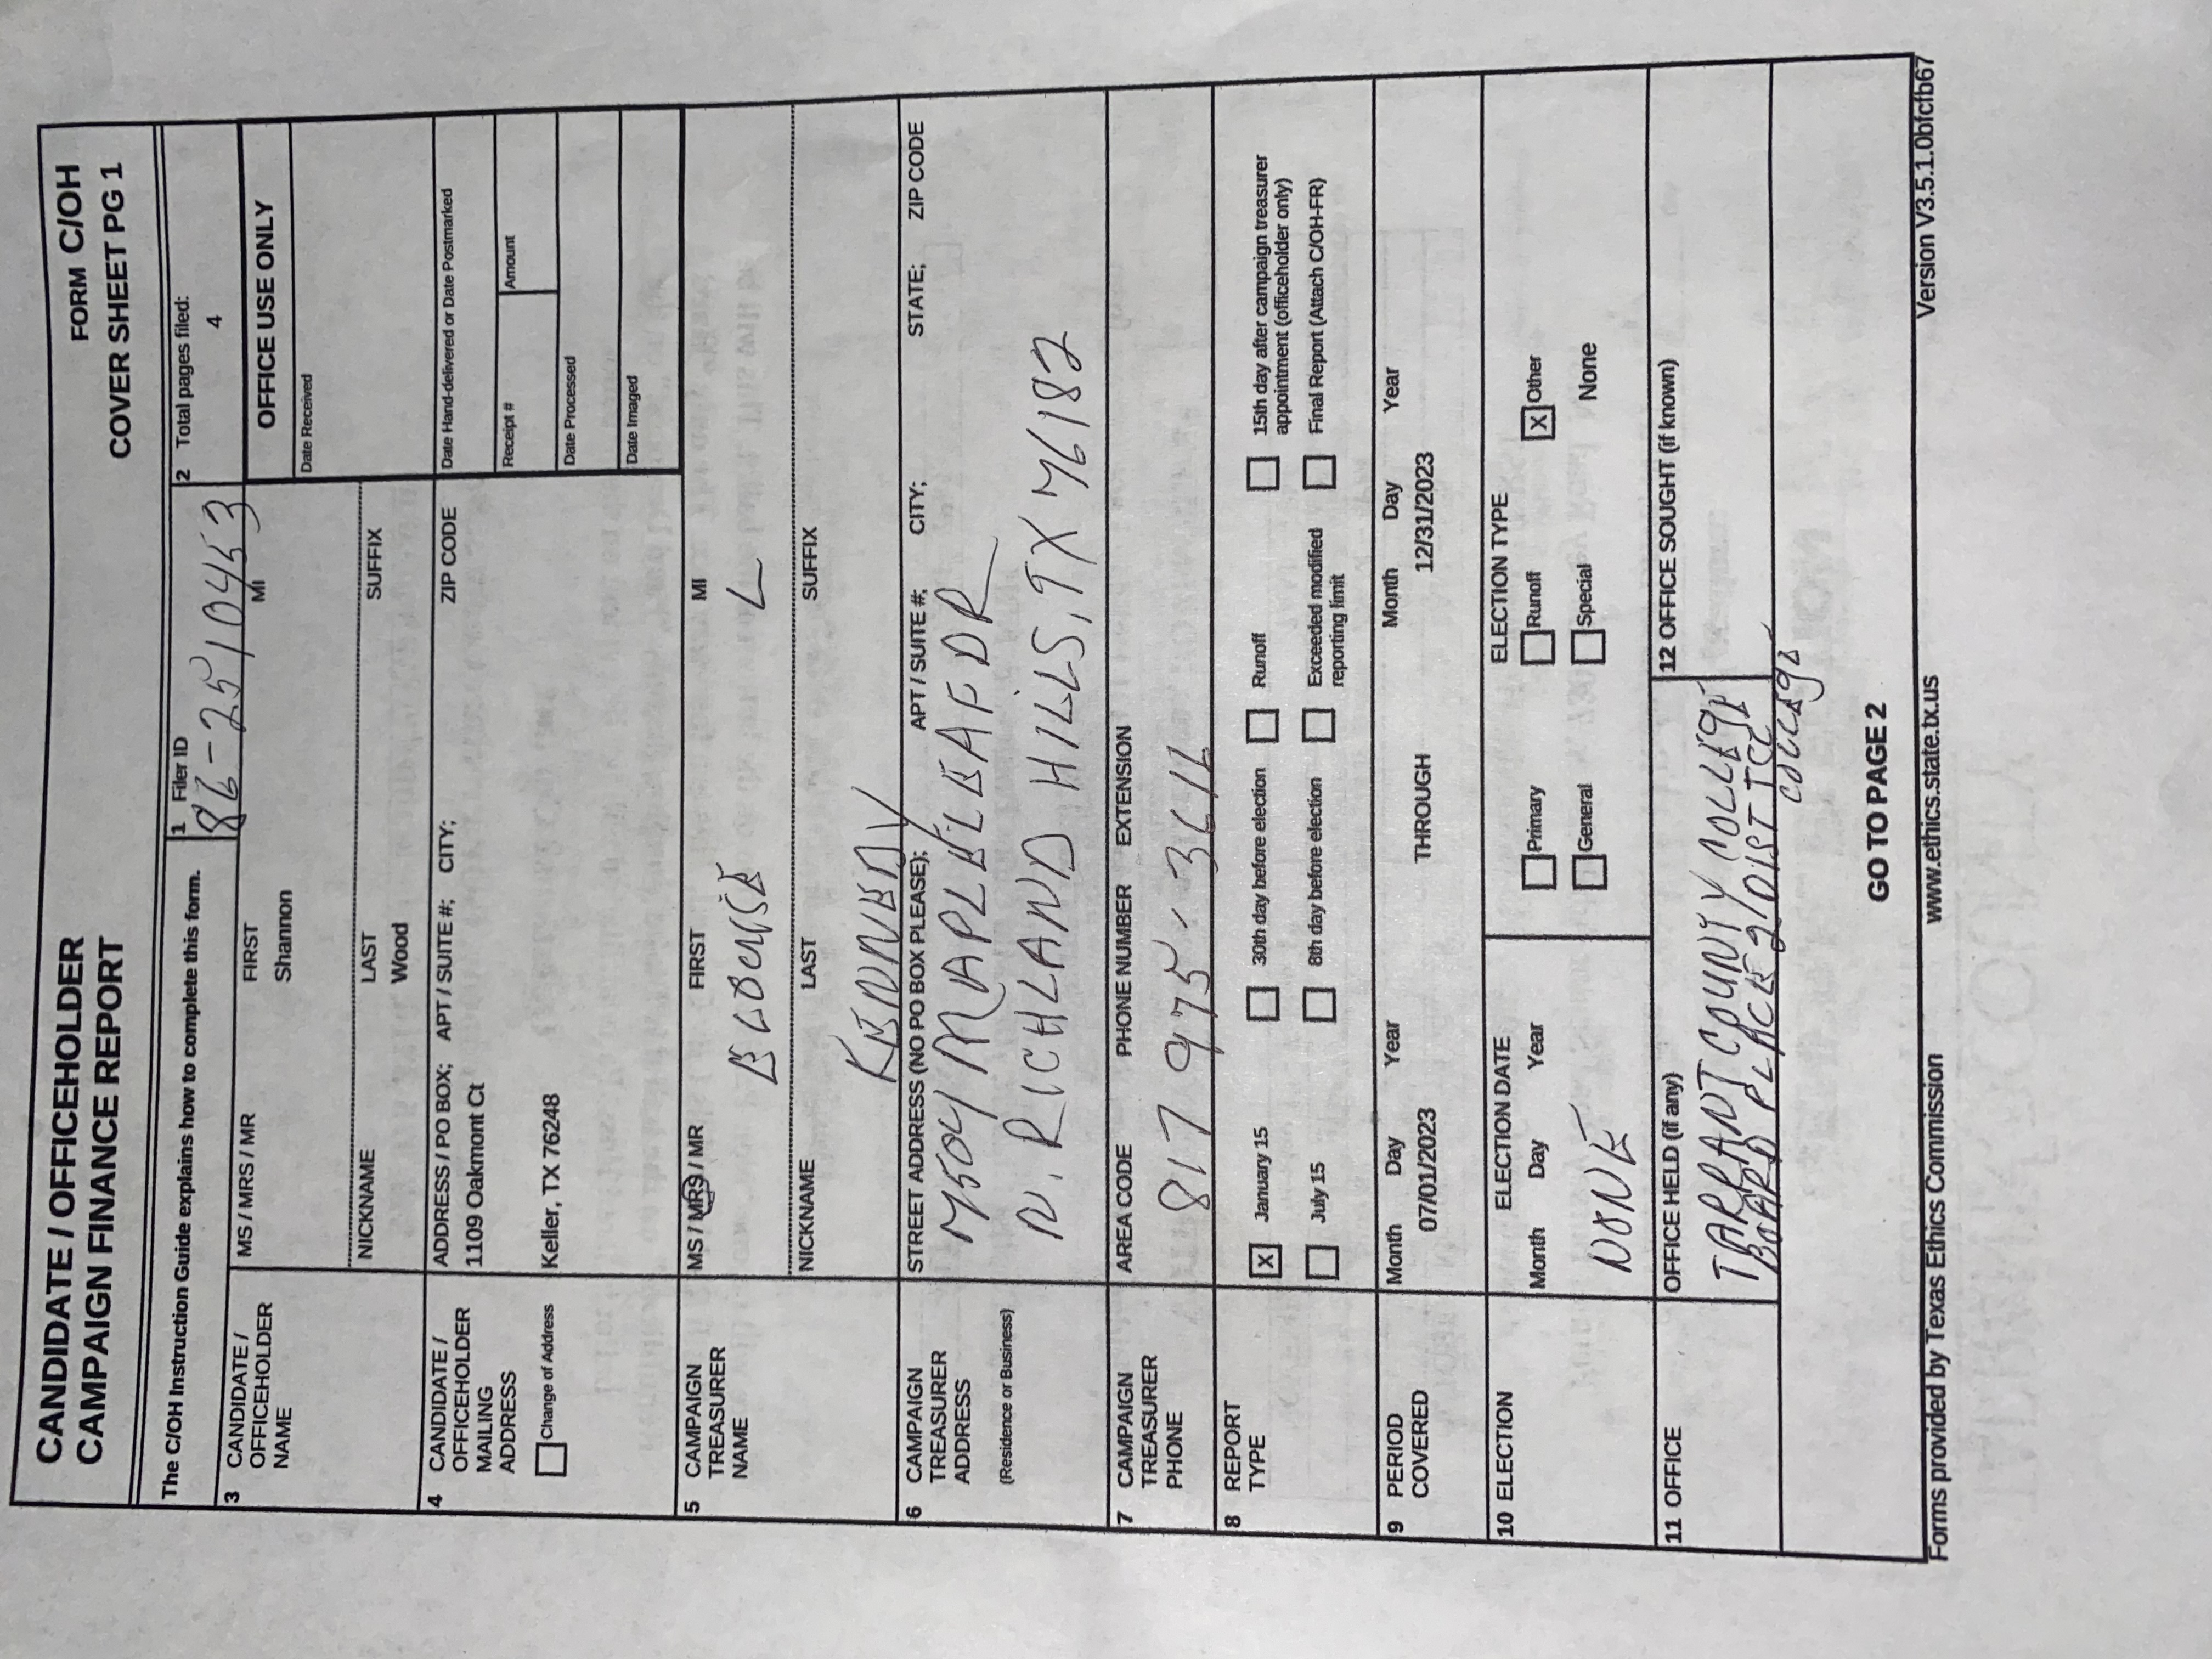 CANDIDATE / OFFICEHOLDER
CAMPAIGN FINANCE REPORT
FORM C/OH
COVER SHEET PG 1
The C/OH Instruction Guide explains how to complete this form.
1 Filer ID
86-2510453
2 Total pages filed:
4
3 CANDIDATE /
OFFICEHOLDER
NAME
MS / MRS / MR FIRST MI
Shannon
NICKNAME LAST SUFFIX
Wood
OFFICE USE ONLY
Date Received
4 CANDIDATE /
OFFICEHOLDER
MAILING
ADDRESS
Change of Address
ADDRESS / PO BOX; APT / SUITE #; CITY; ZIP CODE
1109 Oakmont Ct
Keller, TX 76248
Date Hand-delivered or Date Postmarked
Receipt # Amount
Date Processed
Date Imaged
5 CAMPAIGN
TREASURER
NAME
MS / MRS / MR FIRST MI
L
NICKNAME LAST SUFFIX
KENNEDY
6 CAMPAIGN
TREASURER
ADDRESS
(Residence or Business)
STREET ADDRESS (NO PO BOX PLEASE); APT / SUITE #; CITY; STATE; ZIP CODE
7504 MAPLELEAF DR
N. RICHLAND HILLS, TX 76182
7 CAMPAIGN
TREASURER
PHONE
AREA CODE PHONE NUMBER EXTENSION
817 975-
8 REPORT
TYPE
X January 15 30th day before election Runoff 15th day after campaign treasurer
appointment (officeholder only)
July 15 8th day before election Exceeded modified
reporting limit Final Report (Attach C/OH-FR)
9 PERIOD
COVERED
Month Day Year Month Day Year
07/01/2023 THROUGH 12/31/2023
10 ELECTION
ELECTION DATE
Month Day Year
NONE
ELECTION TYPE
Primary Runoff X Other
General Special None
11 OFFICE
OFFICE HELD (if any)
TARRANT COUNTY COLLEGE
BOARD PLACE 2/DIST
COLLEGE
12 OFFICE SOUGHT (if known)
GO TO PAGE 2
Forms provided by Texas Ethics Commission www.ethics.state.tx.us Version V3.5.1.0bfcfb67